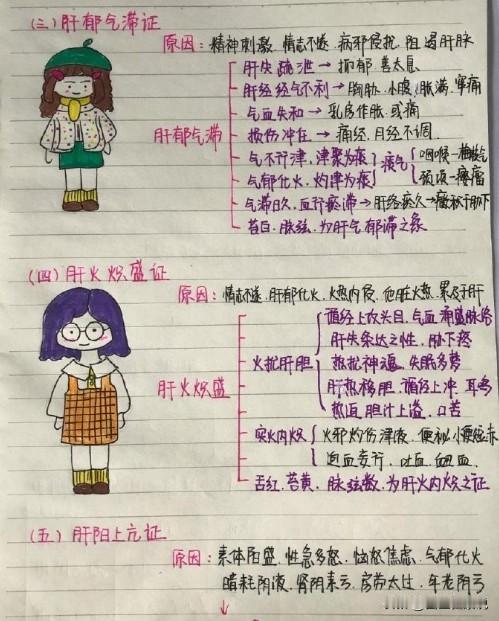 (三) 肝郁气滞证
原因: 精神刺激, 情志不遂, 病邪侵扰, 阻遏肝脉
肝郁气滞
肝失疏泄 → 抑郁 善太息
肝经经气不利 → 胸胁、小腹、胀满、窜痛
气血失和 → 乳房作胀、或痛
损伤冲任 → 痛经、月经不调
气不行津, 津聚为痰
气郁化火, 灼津为痰
痰气
咽喉-梅核气
颈项-瘿瘤
气滞日久, 血行瘀滞 → 肝络瘀久 → 癥积于胁下
苔白、脉弦, 为肝气郁滞之象
(四) 肝火炽盛证
原因: 情志不遂, 肝郁化火, 火热内侵, 他脏火热, 累及于肝
肝火炽盛
火扰肝胆
循经上攻头目, 气血涌盛脉络
肝失条达之性, 胁下疼
热扰神魂, 失眠多梦
肝热移胆, 循经上冲, 耳鸣
热迫, 胆汁上溢, 口苦
实火内炽
火邪灼伤津液, 便秘, 小便短赤
迫血妄行, 吐血, 衄血
舌红、苔黄、脉弦数, 为肝火内炽之证
(五) 肝阳上亢证
原因: 素体阳盛, 性急多怒, 恼怒焦虑, 气郁化火
暗耗阴液, 肾阴素亏, 房劳太过, 年老阴亏
↓